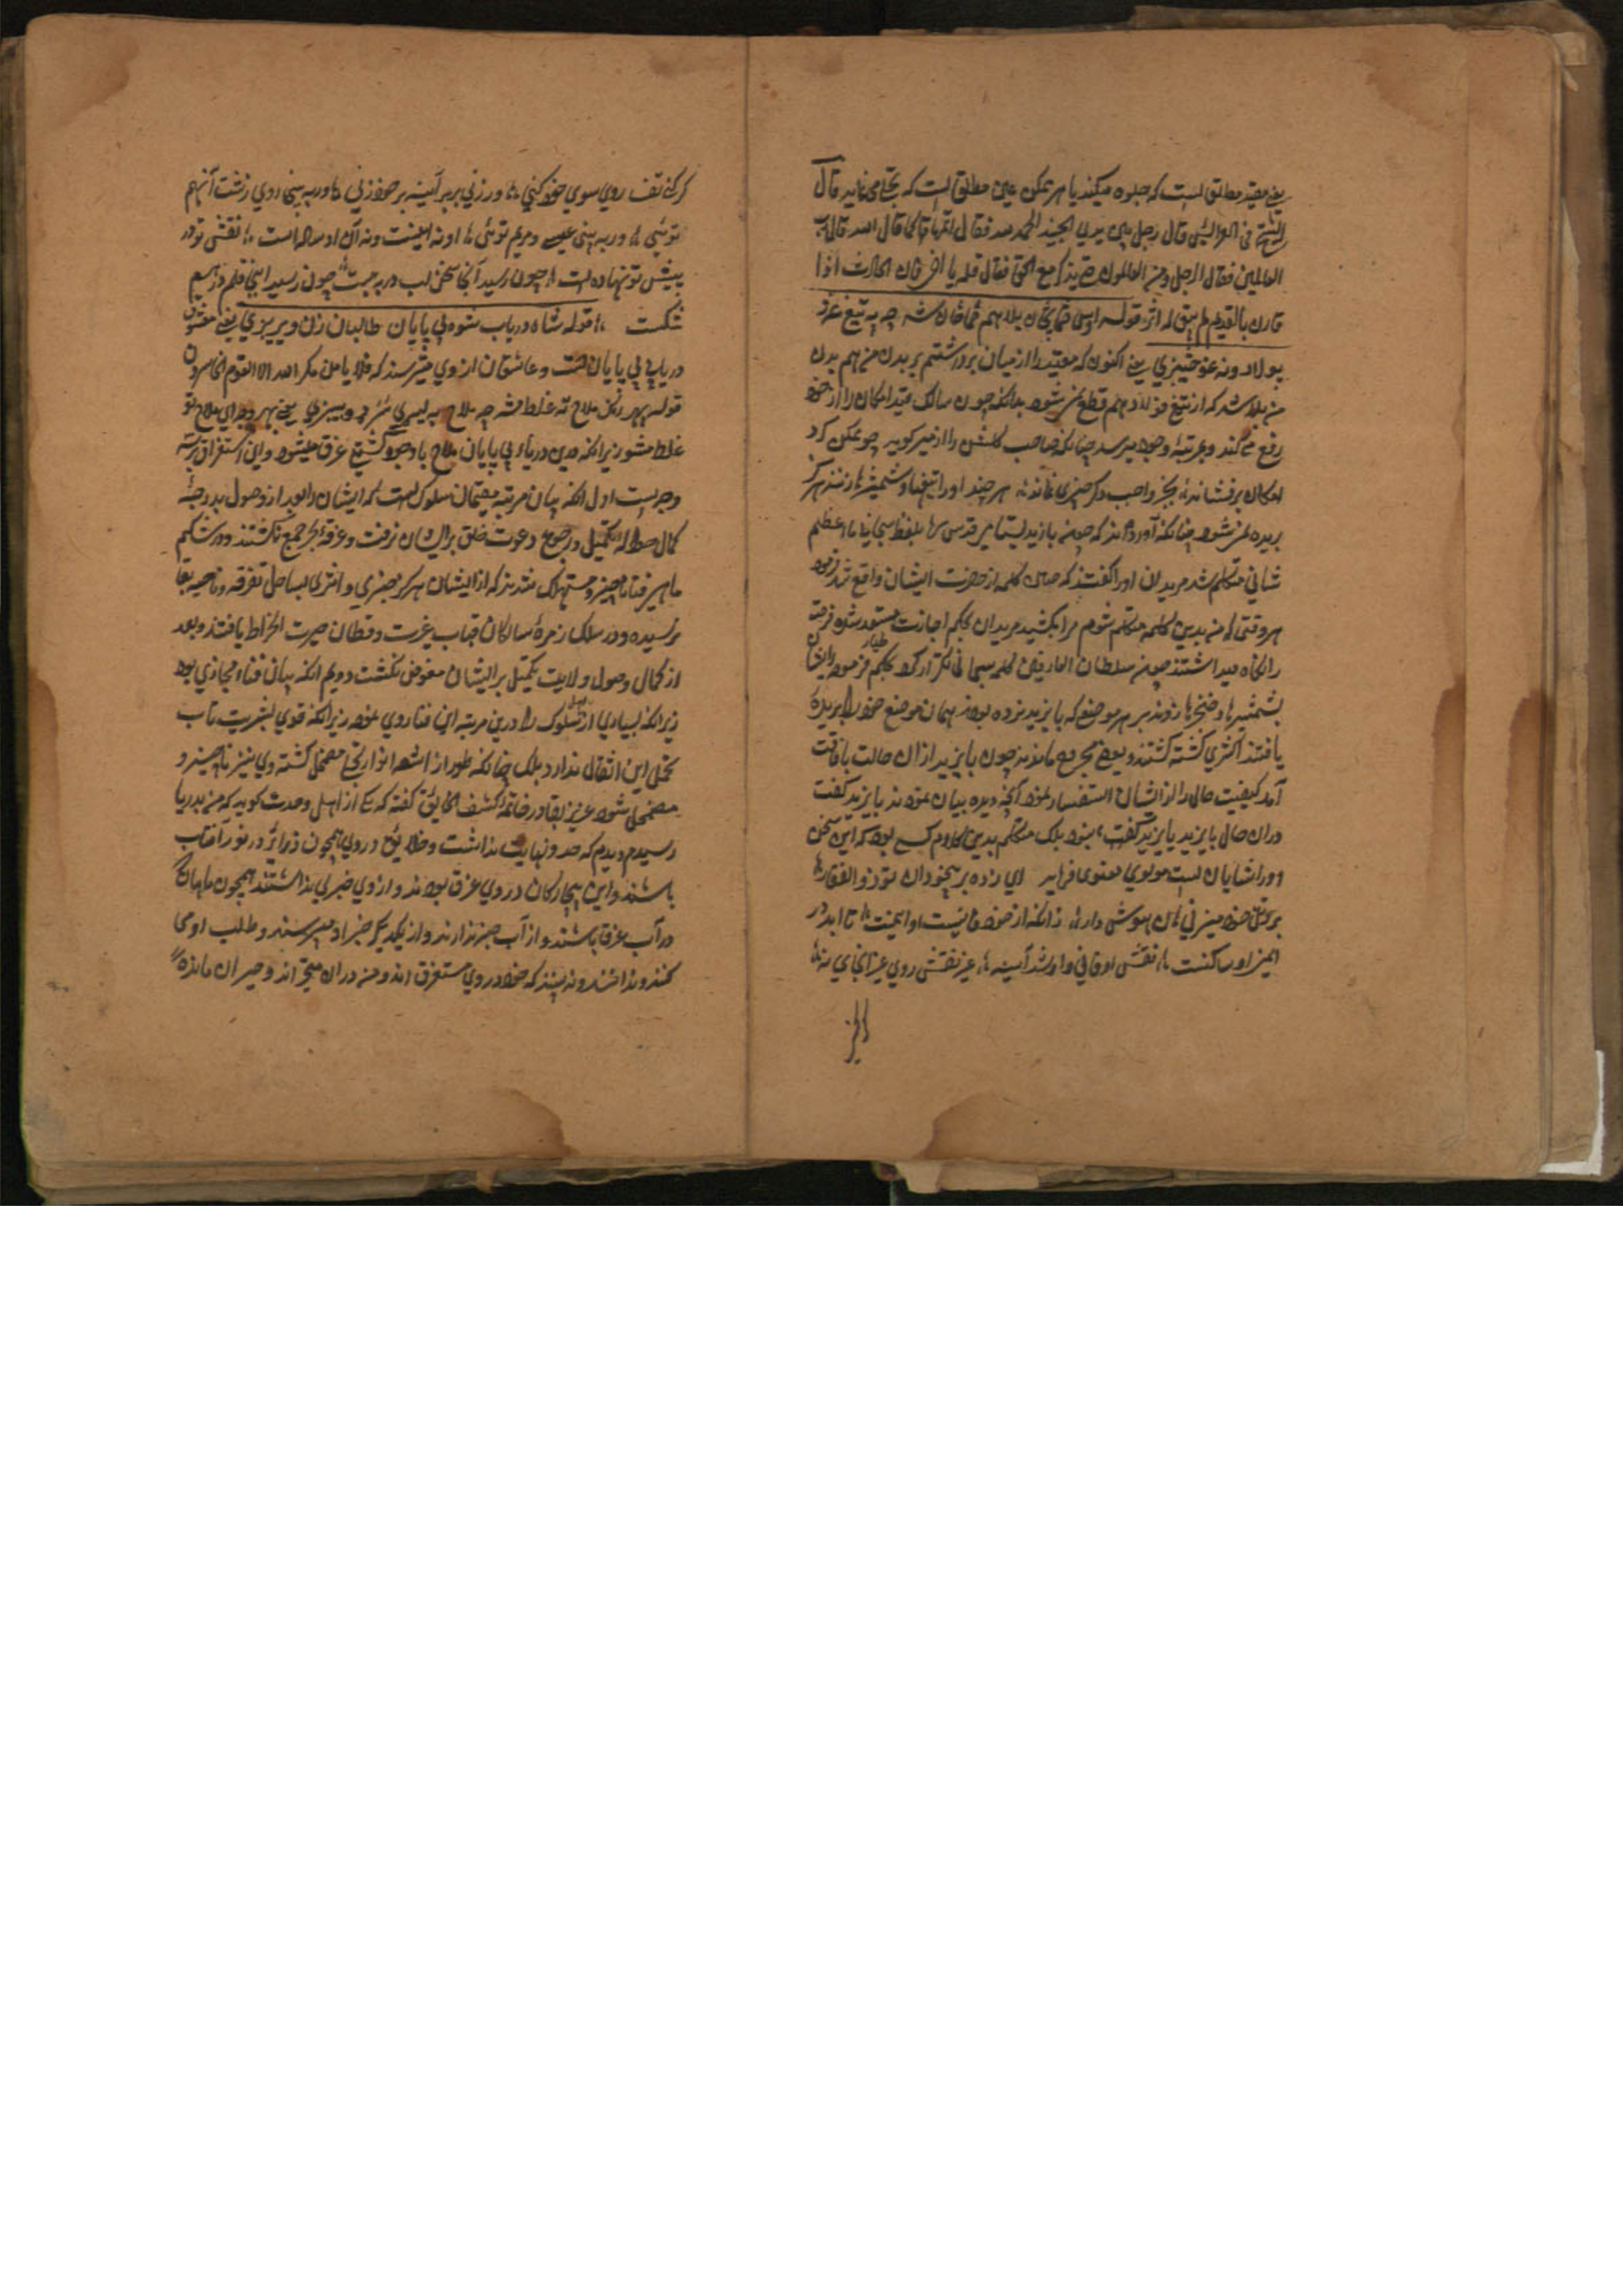 یعنی مقید مطلق است که جلوه میکند یا هر ممکن عین مطلق است که تجلی می نماید قال
الشیخ فی العرائس قال رجل بین یدی الجنید الحمد لله فقال اتمها کما قال الله قل رب
العالمین فقال الرجل و من العالمون حتی یذکر مع الحق فقال قله یا اخی فان الحادث اذا
قارن بالقدیم لم یبق له اثر قوله
پولاد و نه غو یعنی اکنون که مقید را از میان برداشتم بر بدن من هم بدن
من بلا شد که از تیغ فولاد هم قطع نمیشود بدانکه چون سالک قید امکان را از خود
رفع می کند و بمرتبهٔ وجود میرسد چنانکه صاحب کلشن راز میر کوید چو ممکن کرد
امکان برفشاند بجز واجب دکر چیزی نماند هر چند او را تیغها و شمشیرها زنند هرکز
بریده نمیشود چنانکه آورده اند که چون بایزید بسطامی قدس سره بلفظ سبحانی ما اعظم
شانی متکلم شد مریدان او را کفتند که چنین کلمه از حضرت ایشان واقع شد فرمود
هر وقتی که من بدین کلمه متکلم شوم مرا بکشید مریدان بحکم اجازت مستعد شده فرصت
را نکاه میداشتند چون سلطان العارفین کلمه سبحانی تکرار کرد بحکم فرموده ایشان
بشمشیرها و خنجرها زدند بر هر موضع که بایزید زده بودند همان موضع خود را بریده
یافتند اکثری کشته کشتند و بعضی مجروح ماندند چون بایزید از ان حالت بافاقت
آمد کیفیت حال را از ایشان استفسار نمود آنچه دیده بیان نمودند بایزید کفت
دران حال بایزید بایزید نبود بلک متکلم بدین کلام کسی بود که این سخن
او را شایان است مولوی معنوی فرماید ای زده بر بیخودان تو ذوالفقار
بر تن خود میزنی آن هوش دار زانکه از خود فانیست او ایمنست تا ابد در
ایمنی او ساکنست نقش او فانی و او شد آینه غیر نقش روی غیر آنجای نه
کر کنی تف روی سوی خود کنی ور زنی بر آینه بر خود زنی ور به بینی روی زشت آنهم
توئی ور به بینی عیسی و مریم توئی او نه اینست و نه آن او ساده است نقش تو در
پیش تو نهاده است چون رسید آنجا سخن لب در ببست چون رسید اینجا قلم درهم
شکست قوله شاه دریاب شوه بی پایان طالبان یعنی معشوق
دریای بی پایان است و عاشقان از وی میترسند که فلا یأمن مکر الله الا القوم الخاسرون
قوله بهر رنک ملاح ته غلط مشه چه ملاح یعنی بهر رنک ای ملاح تو
غلط مشو زیرا که درین دریاء بی پایان ملاح با وجود کشتی غرق میشود و این استغراق بر دو
وجه است اول آنکه بیان مرتبه منتهیان سلوک است که ایشان را بعد از وصول بدرجهٔ
کمال حواله تکمیل و رجوع دعوت خلق بر ایشان نرفت و غرقهٔ بحر جمع کشتند و در شکم
ماهی فنا ناچیز و مستهلک شدند که از ایشان هرکز خبری و اثری بساحل تفرقه و ناحیه بقا
نرسیده و در سلک زمرهٔ ساکان قباب غیرت و قطان حیرت انخراط یافتند و بعد
از کمال وصول ولایت تکمیل بر ایشان مفوض نکشت دویم آنکه بیان فناء مجازی بود
زیرا که بسیاری از اهل سلوک را درین مرتبه این فنا روی نمود زیرا که قوی بشریت تاب
تحمل این اثقال ندارد بلک چنانکه طور از اشعهٔ انوار تجلی مضمحل کشته وی نیز ناچیز و
مضمحل شود عزیز در خاتمهٔ کشف الحقایق کفته که یکی از اهل وحدت کوید که من بدریا
رسیدم و دیدم که حد و نهایت نداشت و خلایق در وی همچون ذرات در نور آفتاب
باشند و این بیچارکان در وی غرق بودند و از وی خبری نداشتند همچون ماهیان که
در آب غرق باشند و از آب خبر ندارند و از یکدیکر خبر او میپرسند و طلب او می
کنند و ندانند و نه بینند که خود در وی مستغرق اند و من دران متحیر اند و حیران مانده